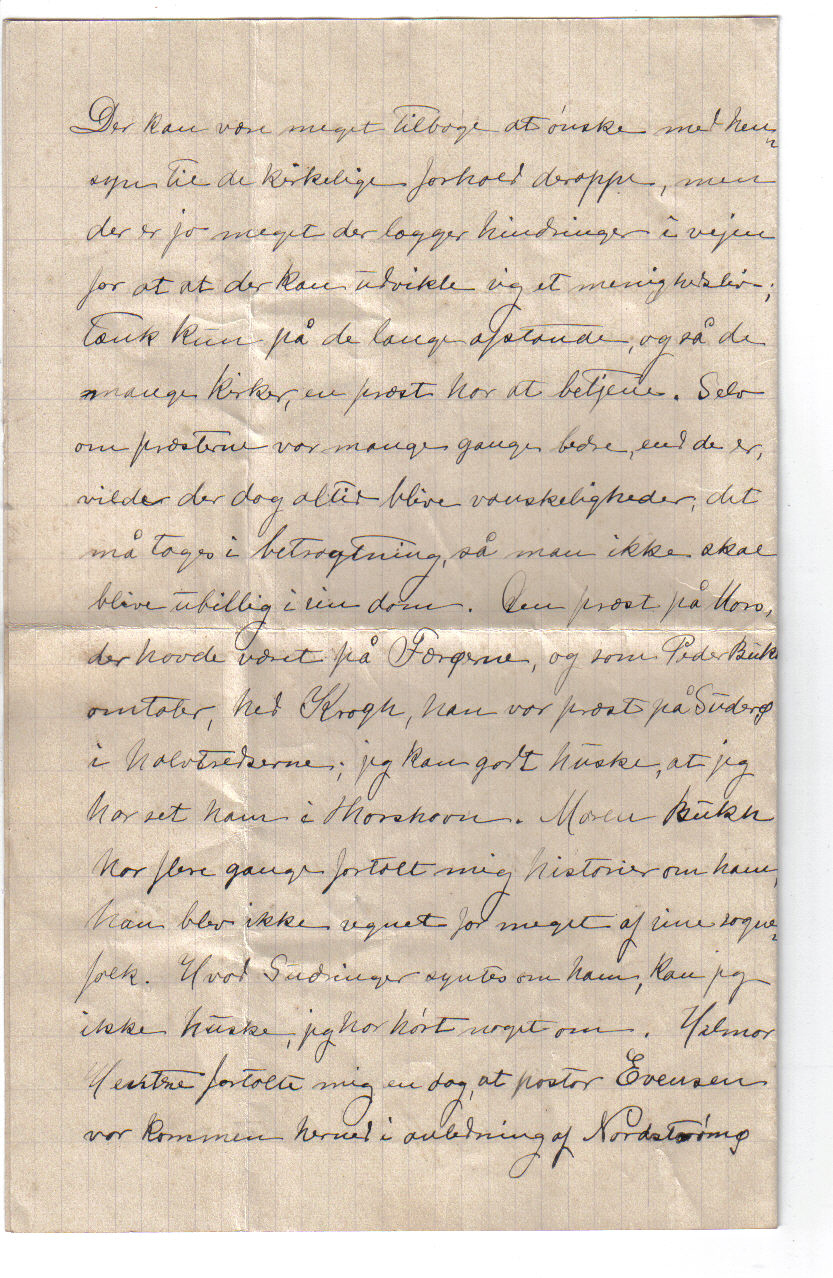 Der kan være meget tilbage at ónske med hen„
syn til de kirkelige forhold deroppe, men
der er jo meget der lægger hindringer i vejen
for at at der kan udvikle sig et menighedsliv;
tænk kun på de lange afstande, og så de
mange kirker, en præst har at betjene. Selv
om præsterne var mange gange bedre, end de er,
vilde der dog altid blive vanskeligheder, det
må tages i betragtning, så man ikke skal
blive ubillig i sin dom. Den præst på Mors,
der havde været på Færøerne, og som Peder Bukh
omtaler, hed Krogh, han var præst på Suderø
i halvtredserne; jeg kan godt huske, at jeg
har set ham i Thorshavn. Maren Bukh
har flere gange fortalt mig historier om ham,
han blev ikke regnet for meget af sine sogne„
folk. Hvad Sudringer syntes om ham, kan jeg
ikke huske, jeg har hórt noget om. Hilmar
fortalte mig en dag, at pastor Evensen
var kommen herned i anledning af Nordstróms